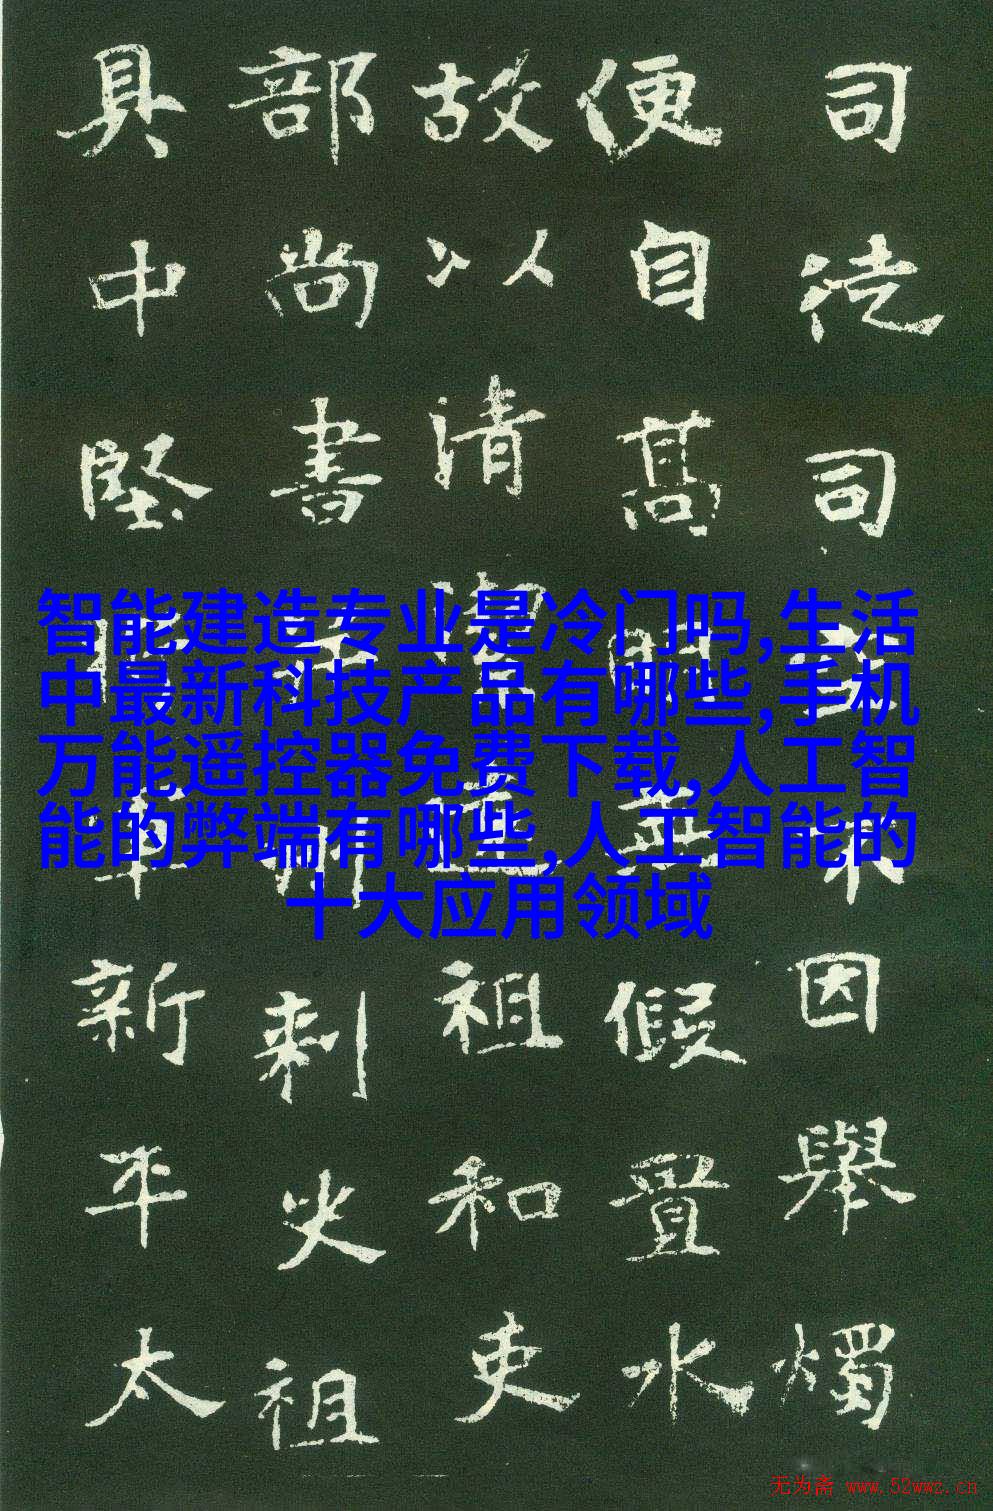 司徒司不因舉燭
便自高明假置水
故以清祖和吏
部尚書州刺史祖
具中堅將軍新平太
智能建造专业是冷门吗,生活
中最新科技产品有哪些,手机
万能遥控器免费下载,人工智
能的弊端有哪些,人工智能的
十大应用领域
无为斋 www.52wwz.cn